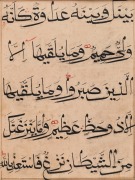 بينك وبينه عداوة كأنه
ولي حميم وما يلقيها
الا الذين صبروا وما يلقيها
الا ذو حظ عظيم واما ينزغنك
من الشيطان نزغ فاستعذ بالله